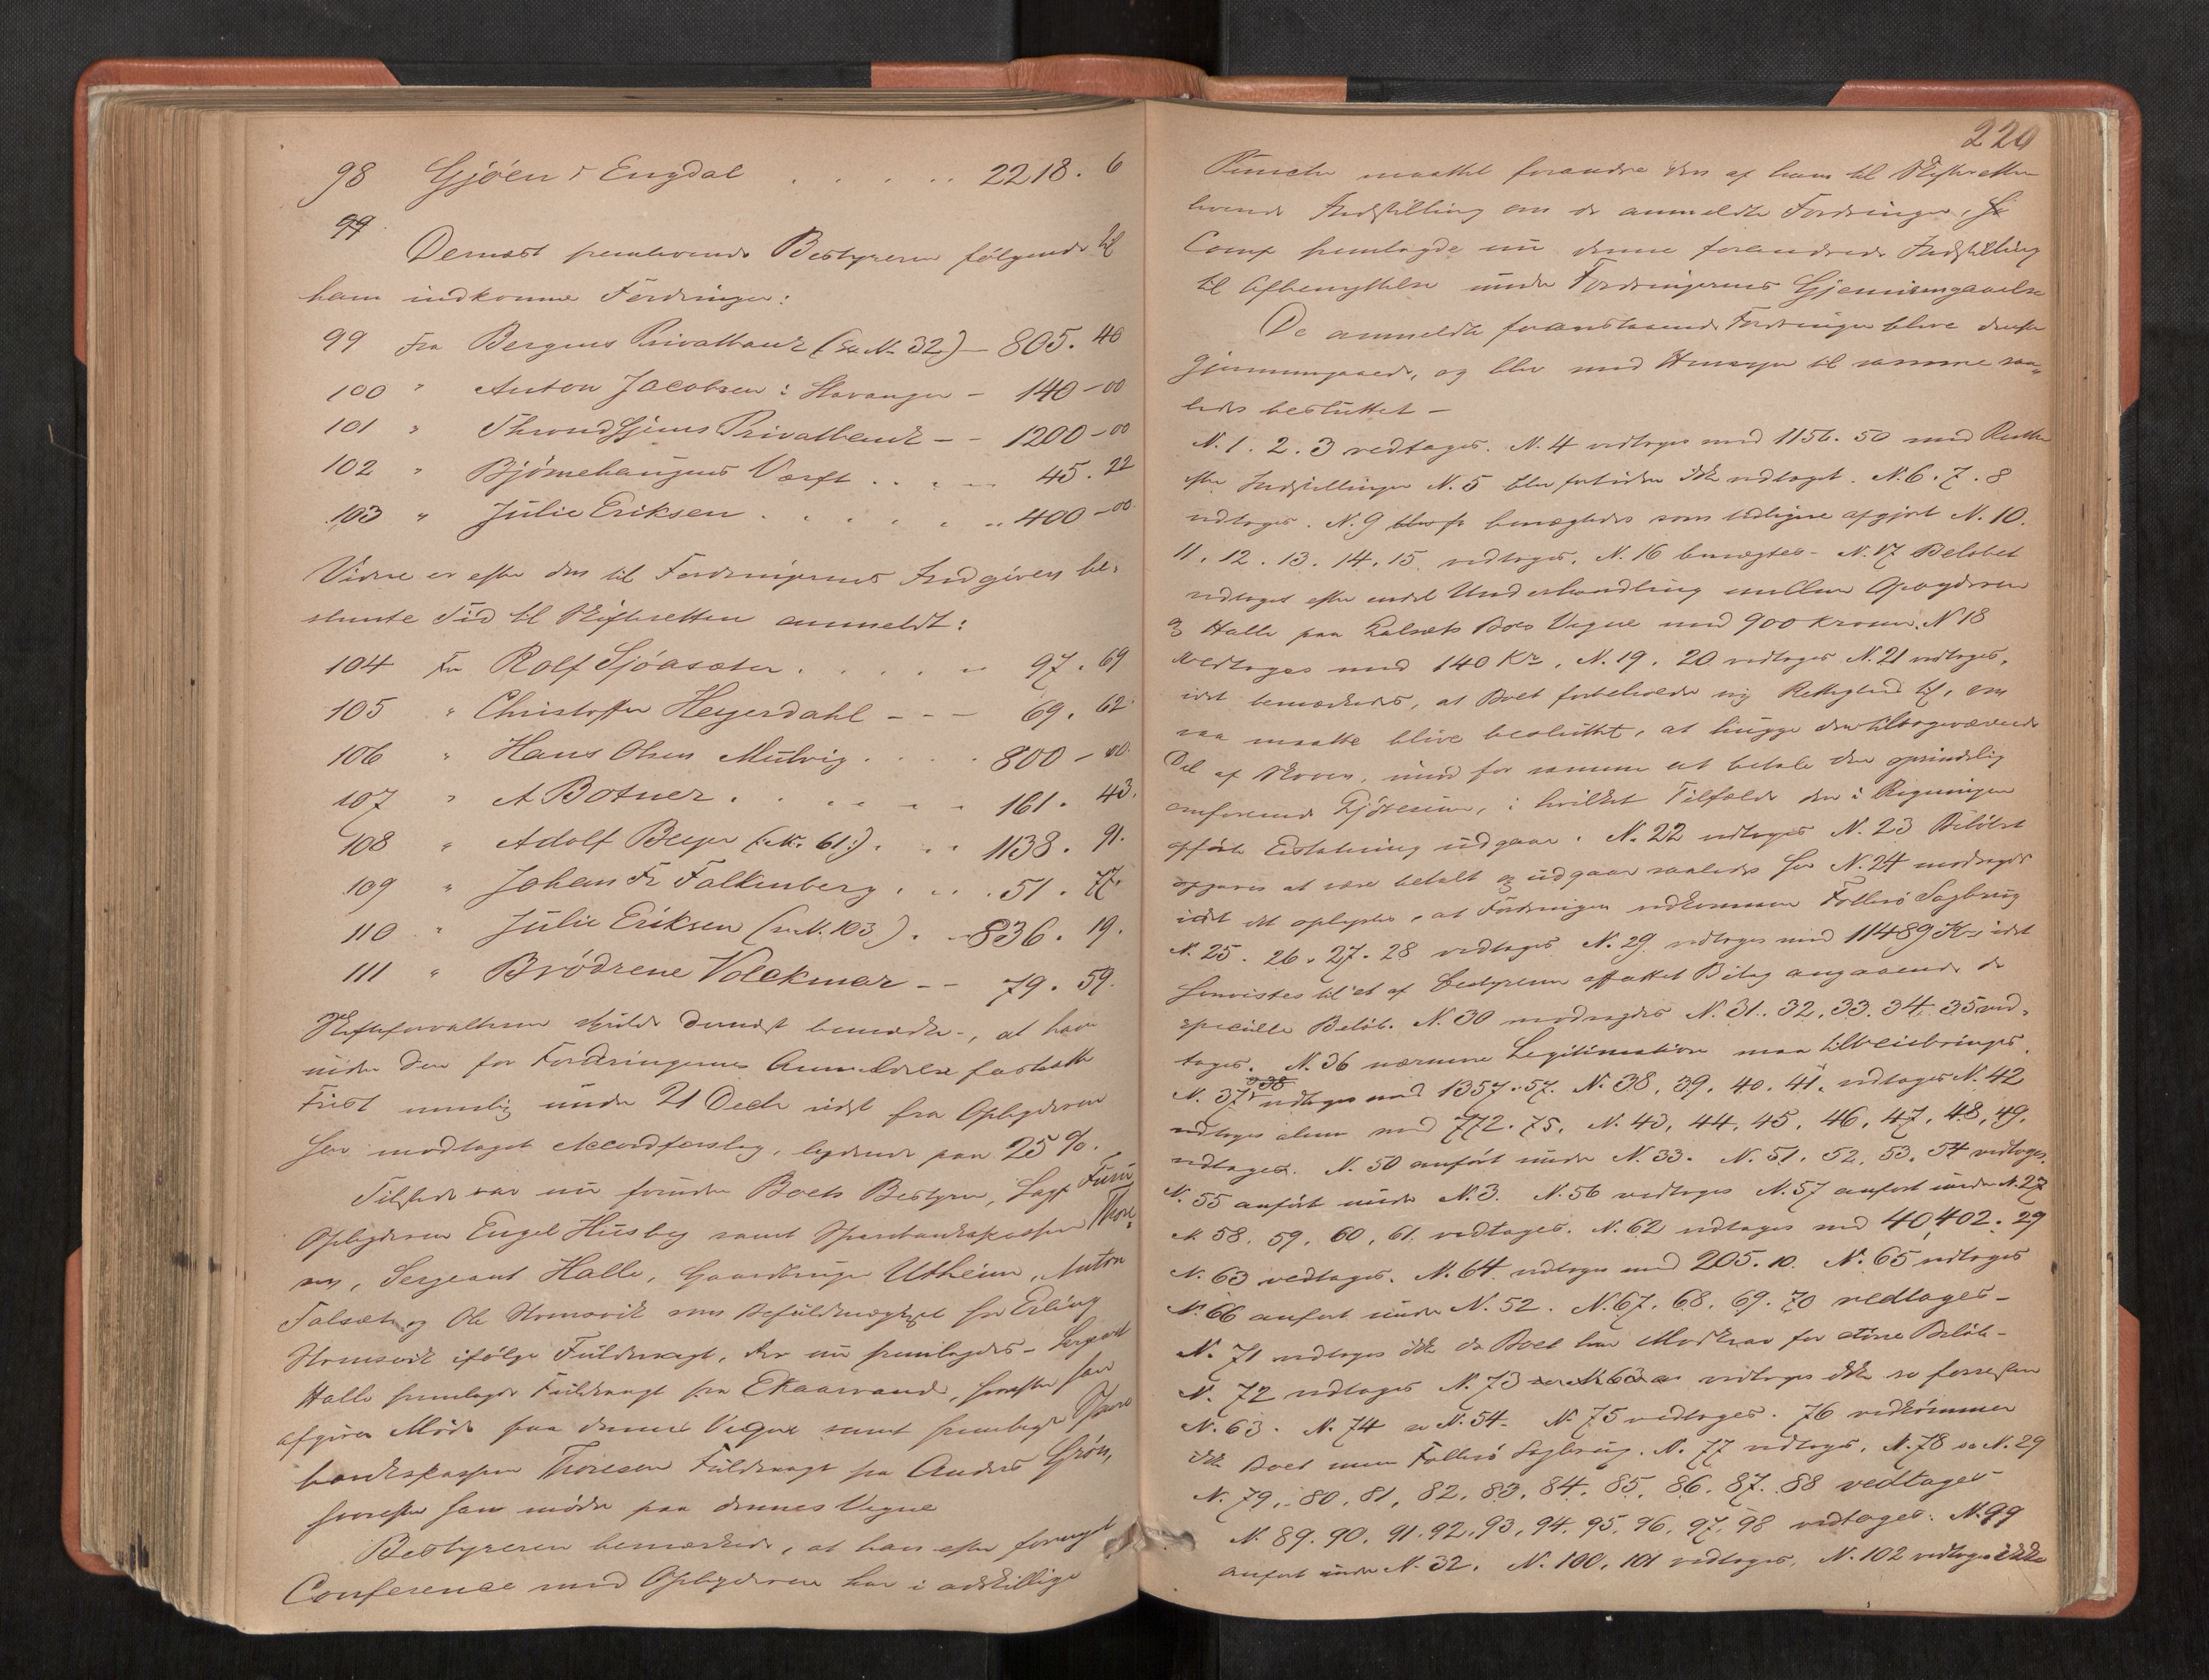 98 Gjöen i Engdal . . . . . . 2218. 6
99
Dernæst fremleverede Bestyreren følgende til
ham indkomne Fordringer:
99 Fra Bergens Privatbank (se N. 32) – 805. 40
100 " Anton Jacobsen i Stavanger – 140 – 00
101 " Throndhjems Privatbank – – 1200 – 00
102 " Bjørnehaugens Værft . . . . – 45. 22
103 " Julie Eriksen . . . . . . . 400 – 00
Videre er efter den til Fordringernes Indgiven be-
stemte Tid til Skifteretten anmeldt:
104 Fra Rolf Sjöasæter . . . . . . 97. 69
105 " Christoffer Heyerdahl – – – 69. 62
106 " Hans Olsen Mulvig . . . . 800 – 00.
107 " A Botner . . . . . . . 161. 43.
108 " Adolf Beyer (N. 61) . . . 1138. 91.
109 " Johan Fr Falkenberg . . . 51. 77.
110 " Julie Eriksen (se N. 103) . . 836. 19.
111 " Brödrene Volckmar – – 79. 59.
Skifteforvalteren skulde dernæst bemærke –, at han
inden den for Fordringernes Anmeldelse fastsatte
Frist nemlig under 21 Decbr sidst fra Opbyderen
har modtaget Accordforslag, lydende paa 25 %.
Tilstede var nu foruden Boets Bestyrer, Sagf
Opbyderen Engel Husby samt Sparebankskasserer Thore-
sen, Sergeant Halle, Gaardbruger Utheim, Anton
Talsæt og Ole Stromsvik som Befuldmægtiget for Erling
Stromsvik ifölge Fuldmagt, der nu fremlagdes – Sergeant
Halle fremlagde Fuldmagt fra E Kaarvand, hvorefter han
afgiver Möde paa dennes Vegne samt fremlagde Spare
bankskasserer Thoresen Fuldmagt fra Anders Grön,
hvorefter han möder paa dennes Vegne
Bestyreren bemærkede, at han efter foregt
Conference med Opbyderen har i adskillige
229
Puncter maattet forandre den af ham til Skifteretten
leverede Indstilling om de anmeldte Fordringer,
Comp fremlagde nu denne forandrede Indstilling
til Afbenyttelse under Fordringernes Gjennemgaaelse
De anmeldte foranstaaende Fordringer bleve derefter
gjennemgaaede, og blev med Hensyn til samme saa-
ledes besluttet –
N. 1. 2. 3 vedtages. N. 4 vedtages med 1156. 50 med Renter
efter Indstillingen N. 5 blev fortiden ikke vedtaget. N. 6. 7. 8
vedtages. N. 9 benægtedes som tidligere afgjort N. 10.
11. 12. 13. 14. 15. vedtages. N. 16 benægtes – N. 17 Belöbet
vedtaget efter endel Underhandling mellem Opbyderen
og Halle paa Talsæts Boes Vegne med 900 Kroner. N 18
vedtages med 140 Kr. N. 19. 20 vedtages N. 21 vedtages,
idet bemærkedes, at Boet forbeholder sig Rettighed til, om
saa maatte blive besluttet, at hugge den tilbageværende
Del af Skoven, imod for samme at betale den oprindelig
omforenede Kjöbesum, i hvilket Tilfælde den i Regningen
opförte Erstatning udgaar. N. 22 vedtages N. 23 Belöbet
opgives at være betalt og udgaar saaledes her N. 24 modsagdes
idet det oplystes, at Fordringen vedkommer Follesö Sagbrug
N. 25. 26. 27. 28 vedtages N. 29 vedtages med 11489 Kr idet
henvistes til et af Bestyreren affattet Bilag angaaende de
specielle Belöb. N. 30 modsagdes N. 31. 32. 33. 34. 35 ved-
tages. N. 36 nærmere Legitimation maa tilveiebringes.
N. 37 vedtages med 1357. 57. N. 38. 39. 40. 41. vedtages N. 42
vedtages alene med 772. 75. N. 43, 44, 45, 46, 47, 48, 49,
vedtages. N. 50 anfört under N. 33. N. 51. 52. 53. 54 vedtages.
N. 55 anfört under N. 3. N. 56 vedtages N. 57 anfört under N. 27
N 58. 59. 60. 61. vedtages. N. 62 vedtages med 40,402. 29
N. 63 vedtages. N. 64 vedtages med 205. 10. N. 65 vedtages
N. 66 anfört under N. 52. N. 67. 68. 69. 70 vedtages –
N. 71 vedtages ikke da Boet har Modkrav for större Belöb –
N. 72 vedtages N. 73 vedtages ikke se
N. 63. N. 74 se N. 54. N 75 vedtages. 76 vedkommer
ikke Boet men Follesö Sagbrug. N. 77 vedtages. N. 78 se N. 29
N. 79. 80. 81. 82. 83. 84. 85. 86. 87. 88 vedtages
N. 89. 90. 91. 92. 93. 94. 95. 96. 97. 98 vedtages. N. 99
anfört under N. 32. N. 100. 101 vedtages. N. 102 vedtages ikke